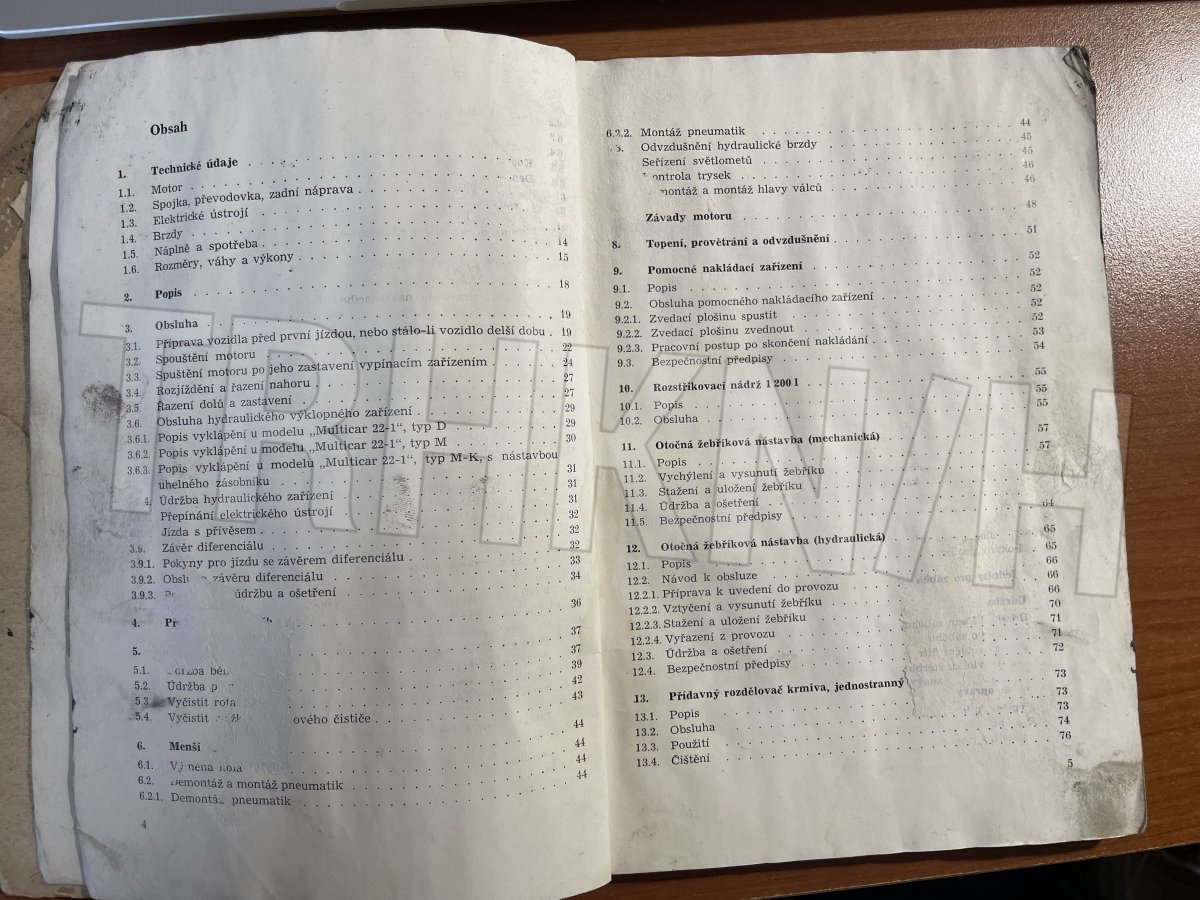 Obsah
1. Technické údaje
1.1. Motor
1.2. Spojka, převodovka, zadní náprava
1.3. Elektrické ústrojí
1.4. Brzdy
1.5. Náplně a spotřeba 14
1.6. Rozměry, váhy a výkony 15
2. Popis 18
3. Obsluha 19
3.1. Příprava vozidla před první jízdou, nebo stálo-li vozidlo delší dobu 19
3.2. Spouštění motoru 22
3.3. Spuštění motoru po jeho zastavení vypínacím zařízením 24
3.4. Rozjíždění a řazení nahoru 27
3.5. Řazení dolů a zastavení 27
3.6. Obsluha hydraulického výklopného zařízení 29
3.6.1. Popis vyklápění u modelu „Multicar 22-1“, typ D 29
3.6.2. Popis vyklápění u modelu „Multicar 22-1“, typ M 30
3.6.3. Popis vyklápění u modelu „Multicar 22-1“, typ M-K, s nástavbou
uhelného zásobníku 31
4. Údržba hydraulického zařízení 31
Přepínání elektrického ústrojí 31
Jízda s přívěsem 32
Závěr diferenciálu 32
3.9.1. Pokyny pro jízdu se závěrem diferenciálu 32
3.9.2. závěru diferenciálu 33
3.9.3. údržbu a ošetření 34
4. 36
5. 37
5.1. 37
5.2. Údržba 39
5.3. Vyčistit 42
5.4. Vyčistit ového čističe 43
6. Menší 44
6.1. 44
6.2. Demontáž a montáž pneumatik 44
6.2.1. Demontáž pneumatik 44
4
6.2.2. Montáž pneumatik 44
Odvzdušnění hydraulické brzdy 45
Seřízení světlometů 45
kontrola trysek 46
montáž a montáž hlavy válců 46
Závady motoru 48
8. Topení, provětrání a odvzdušnění 51
9. Pomocné nakládací zařízení 52
9.1. Popis 52
9.2. Obsluha pomocného nakládacího zařízení 52
9.2.1. Zvedací plošinu spustit 52
9.2.2. Zvedací plošinu zvednout 52
9.2.3. Pracovní postup po skončení nakládání 53
9.3. Bezpečnostní předpisy 54
10. Rozstřikovací nádrž 1 200 l 55
10.1. Popis 55
10.2. Obsluha 55
11. Otočná žebříková nástavba (mechanická) 57
11.1. Popis 57
11.2. Vychýlení a vysunutí žebříku
11.3. Stažení a uložení žebříku
11.4. Údržba a ošetření
11.5. Bezpečnostní předpisy 64
12. Otočná žebříková nástavba (hydraulická) 65
12.1. Popis 65
12.2. Návod k obsluze 66
12.2.1. Příprava k uvedení do provozu 66
12.2.2. Vztyčení a vysunutí žebříku 66
12.2.3. Stažení a uložení žebříku 70
12.2.4. Vyřazení z provozu 71
12.3. Údržba a ošetření 71
12.4. Bezpečnostní předpisy 72
13. Přídavný rozdělovač krmiva, jednostranný 73
13.1. Popis 73
13.2. Obsluha 73
13.3. Použití 74
13.4. Čištění 76
5
TRHKNIH